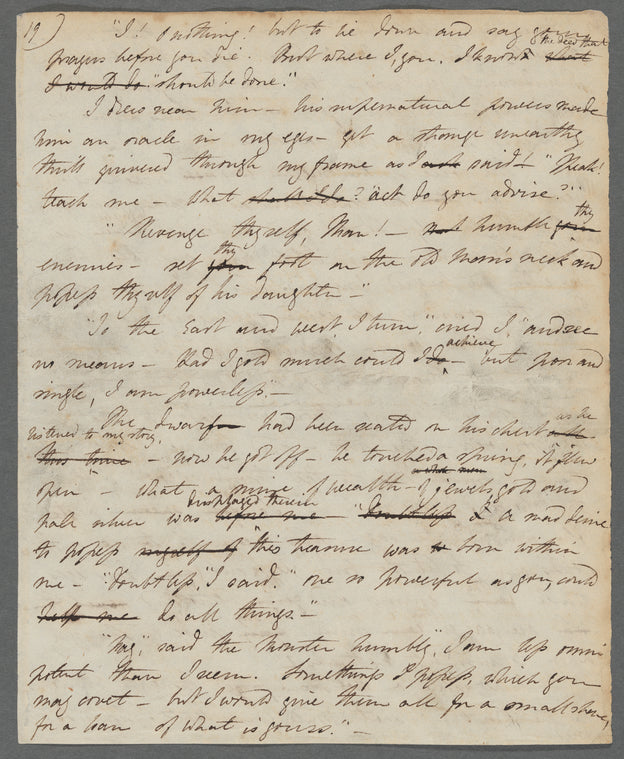 19)
"I! O nothing! but to lie down and say your
prayers before you die. But where I, you, I know the deed that what
I would do "should be done."
I drew near him – his supernatural powers made
him an oracle in my eyes – yet a strange unearthly
thrill quivered through my frame as I said – "Speak!
teach me – what act do you advise?"
"Revenge thyself, Man! – humble thy
enemies – set thy foot on the old Man's neck and
possess thyself of his daughter –"
"To the East and west I turn," cried I, "and see
no means – Had I gold much could I do achieve – but poor and
single, I am powerless. –
The dwarf had been seated on his chest as he
listened to my story,
this time – now he got off – he touched a spring, it flew
open – what a mine of wealth – of jewels, gold and
pale silver was displayed therein before me "Doubtless & a mad desire
to possess myself of this treasure was born within
me – "Doubtless," I said, "one so powerful as you could
help me do all things." –
"Nay," said the Monster humbly, "I am less omni
potent than I seem. Some things I possess which you
may covet – but I would give them all for a small share,
for a loan of what is yours." –